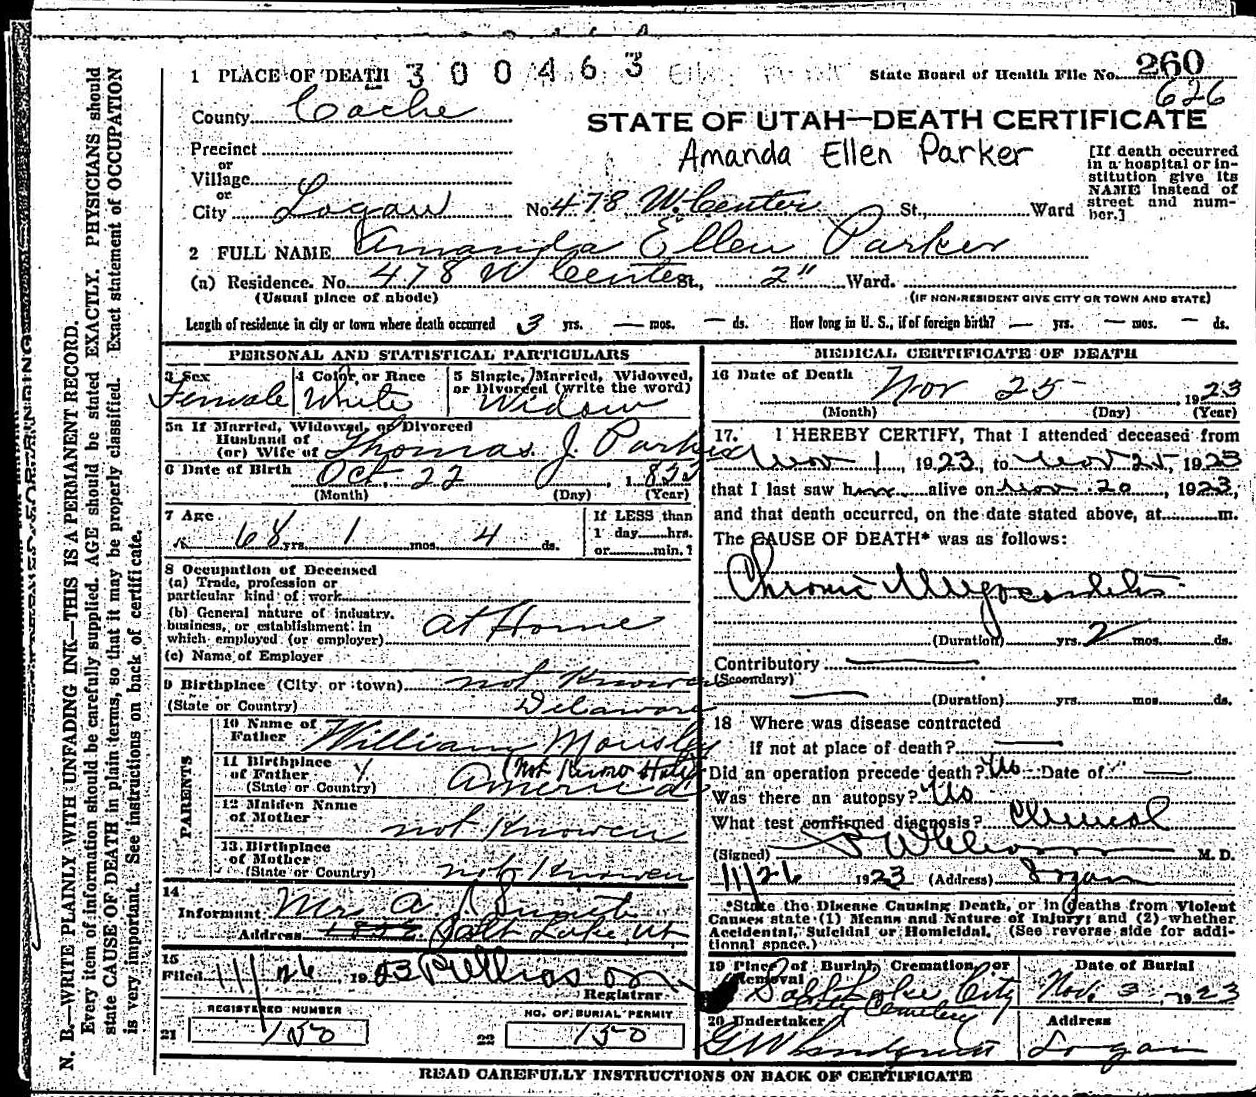 1 PLACE OF DEATH 300463
State Board of Health File No. 260
626
County Cache
STATE OF UTAH—DEATH CERTIFICATE
Precinct
or
Village
or
City Logan
Amanda Ellen Parker
[If death occurred
in a hospital or in-
stitution give its
NAME instead of
street and num-
ber.]
No. 478 W. Center St., Ward
2 FULL NAME Amanda Ellen Parker
(a) Residence. No. 478 W Center St., 2" Ward.
(Usual place of abode)
(IF NON-RESIDENT GIVE CITY OR TOWN AND STATE)
Length of residence in city or town where death occurred 3 yrs. — mos. — ds. How long in U. S., if of foreign birth? — yrs. — mos. — ds.
PERSONAL AND STATISTICAL PARTICULARS
3 Sex
Female
4 Color or Race
White
5 Single, Married, Widowed,
or Divorced (write the word)
Widow
5a If Married, Widowed, or Divorced
Husband of
(or) Wife of Thomas J. Parker
6 Date of Birth Oct. 22, 1855
(Month) (Day) (Year)
7 Age
68 yrs. 1 mos. 4 ds.
If LESS than
1 day hrs.
or min. ?
8 Occupation of Deceased
(a) Trade, profession or
particular kind of work
(b) General nature of industry,
business, or establishment in
which employed (or employer) at Home
(c) Name of Employer
9 Birthplace (City or town) not Knowen
(State or Country) Delaware
PARENTS
10 Name of
Father William Mousley
11 Birthplace
of Father
(State or Country) America (Not Know State
12 Maiden Name
of Mother
not Knowen
13 Birthplace
of Mother
(State or Country) not Knowen
14
Informant Mrs A
Address Salt Lake, Ut
15
Filed 11/26 1923
Registrar
REGISTERED NUMBER
21 150
NO. OF BURIAL PERMIT
22 150
MEDICAL CERTIFICATE OF DEATH
16 Date of Death Nov 25, 1923
(Month) (Day) (Year)
17. I HEREBY CERTIFY, That I attended deceased from
Nov 1, 1923, to Nov 25, 1923
that I last saw her alive on Nov 20, 1923,
and that death occurred, on the date stated above, at m.
The CAUSE OF DEATH* was as follows:
Chronic Myocarditis
(Duration) yrs. 2 mos. ds.
Contributory
(Secondary)
(Duration) yrs. mos. ds.
18 Where was disease contracted
if not at place of death?
Did an operation precede death? No Date of
Was there an autopsy? No
What test confirmed diagnosis? Clinical
(Signed) M. D.
11/26 1923 (Address) Logan
*State the Disease Causing Death, or in deaths from Violent
Causes state (1) Means and Nature of Injury; and (2) whether
Accidental, Suicidal or Homicidal. (See reverse side for addi-
tional space.)
19 Place of Burial, Cremation, or
Removal
Salt Lake City
City Cemetery
Date of Burial
Nov. 3, 1923
20 Undertaker
Address
Logan
READ CAREFULLY INSTRUCTIONS ON BACK OF CERTIFICATE
N. B.—WRITE PLAINLY WITH UNFADING INK—THIS IS A PERMANENT RECORD.
Every item of information should be carefully supplied. AGE should be stated EXACTLY. PHYSICIANS should
state CAUSE OF DEATH in plain terms, so that it may be properly classified. Exact statement of OCCUPATION
is very important. See instructions on back of certificate.